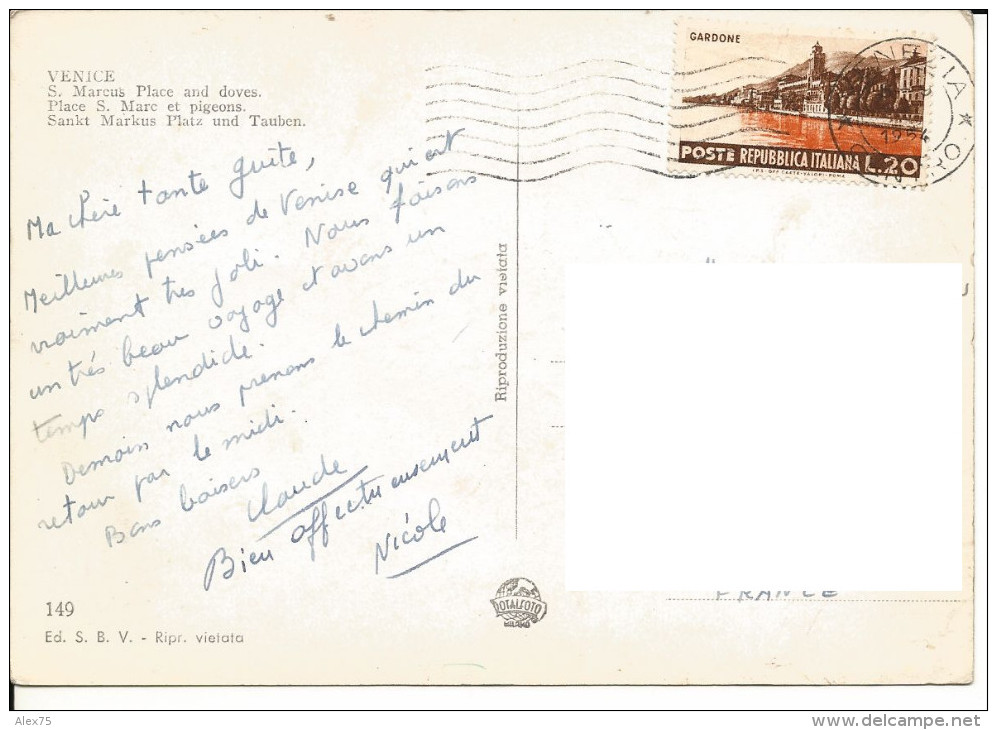 VENICE
S. Marcus Place and doves.
Place S. Marc et pigeons.
Sankt Markus Platz und Tauben.
Ma chère tante Guite,
Meilleures pensées de Venise qui est
vraiment très joli. Nous faisons
un très beau voyage et avons un
temps splendide.
Demain nous prenons le chemin du
retour par le midi.
Bons baisers
Claude
Bien affectueusement
Nicole
149
Ed. S. B. V. - Ripr. vietata
Riproduzione vietata
TOTALFOTO
MILANO
GARDONE
POSTE REPUBBLICA ITALIANA L.20
1954
FRANCE
Alex75
www.delcampe.net